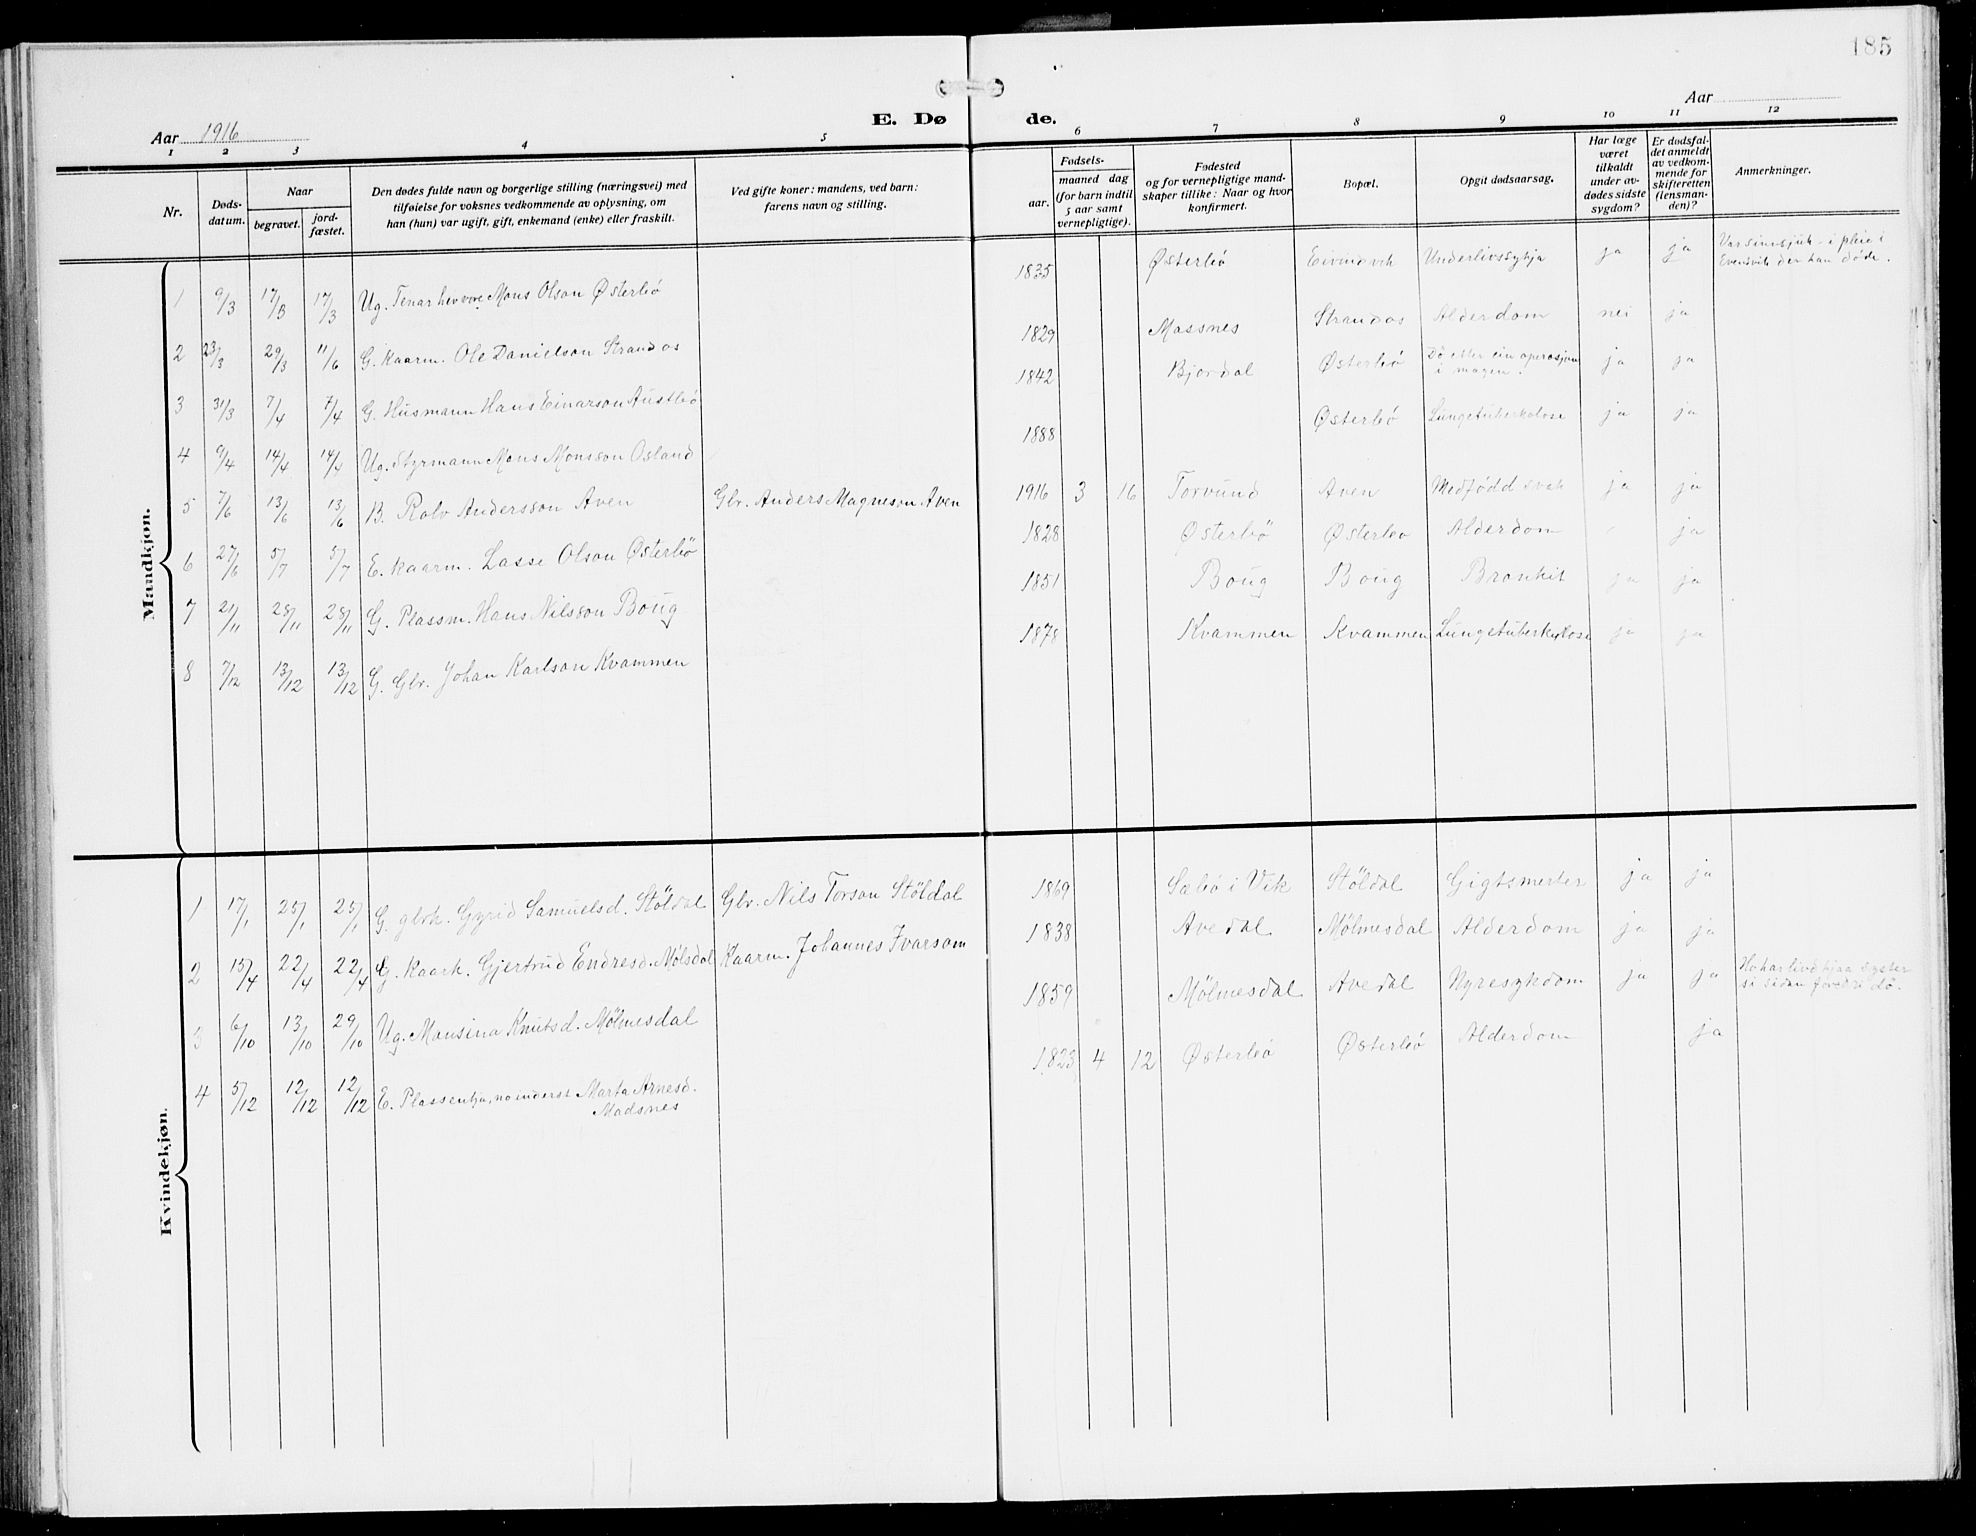 185
Aar 1916
E. Dø de.
Aar
1 2 3 4 5 6 7 8 9 10 11 12
Nr.
Døds-
datum.
Naar
begravet.
jord-
fæstet.
Den dødes fulde navn og borgerlige stilling (næringsvei) med
tilføielse for voksnes vedkommende av oplysning, om
han (hun) var ugift, gift, enkemand (enke) eller fraskilt.
Ved gifte koner: mandens, ved barn:
farens navn og stilling.
Fødsels-
aar.
maaned dag
(for barn indtil
5 aar samt
vernepligtige).
Fødested
og for vernepligtige mand-
skaper tillike: Naar og hvor
konfirmert.
Bopæl.
Opgit dødsaarsag.
Har læge
været
tilkaldt
under av-
dødes sidste
sygdom?
Er dødsfal-
det anmeldt
av vedkom-
mende for
skifteretten
(lensman-
den)?
Anmerkninger.
Mandkjøn.
1 9/3 17/3 17/3 Ug. Mons Olson Østerbö 1835 Østerbö Eivindvik Underlivssykja ja ja Var sinnsjuk - i pleie i
Evensvik der han döde.
2 23/3 29/3 11/6 G. Kaarm. Ole Danielson Strandos 1829 Massnes Strandos Alderdom nei ja
3 31/3 7/4 7/4 G. Husmann Hans Einarson Austbö 1842 Bjordal Østerbö Dö etter ein operasjon
i magen. ja ja
4 9/4 14/4 14/4 Ug. Styrmann Mons Monsson Osland 1888 Østerbö Lungetuberkolose ja ja
5 7/6 13/6 13/6 B. Rolv Andersson Aven Gbr. Anders Magneson Aven 1916 3 16 Torvund Aven Medfödd svak ja ja
6 27/6 5/7 5/7 E. Kaarm. Lasse Olson Østerbö 1828 Østerbö Østerbö Alderdom - ja
7 21/11 28/11 28/11 G. Plassm. Hans Nilsson Boug 1851 Boug Boug Bronkit ja ja
8 7/12 13/12 13/12 G. Gbr. Johan Karlson Kvammen 1878 Kvammen Kvammen Lungetuberkulose ja ja
Kvindekjøn.
1 17/1 25/1 25/1 G. gbrk. Gyrid Samuelsd. Stöldal Gbr. Nils Torson Stöldal 1869 Sæbö i Vik Stöldal Gigtsmerter ja ja
2 15/4 22/4 22/4 G. Kaark. Gjertrud Endresd. Mölsdal Kaarm. Johannes Ivarsom 1838 Avedal Mölmesdal Alderdom ja ja
3 6/10 13/10 29/10 Ug. Monsina Knutsd. Mölmesdal 1859 Mölmesdal Avedal Nyresykdom ja ja Ho har livd hjaa syster
si sidan foreldri dö.
4 5/12 12/12 12/12 E. Marta Arnesd. 1823 4 12 Østerbö Østerbö Alderdom ja
Madsnes